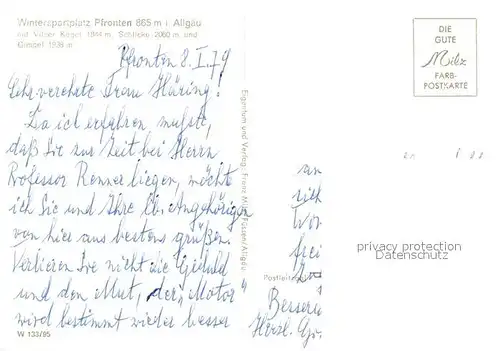 Wintersportplatz Pfronten 865 m i. Allgäu
mit Vilser Kegel 1844 m, Schlicke 2060 m und
Gimpel 1936 m
Pfronten 8.I.79
Sehr verehrte Frau Häring!
Da ich erfahren mußte,
daß Sie zur Zeit bei Herrn
Professor Renner liegen, möchte
ich Sie und Ihre lb. Angehörigen
von hier aus bestens grüßen.
Verlieren Sie nicht die Geduld
und den Mut, der "Motor"
wird bestimmt wieder besser
W 133/95
Eigentum und Verlag: Franz Milz, Füssen/Allgäu
DIE
GUTE
Milz
FARB-
POSTKARTE
an
sich
frei
Postleitzahl
Besseru
Herzl. Gr.
privacy protection
Datenschutz